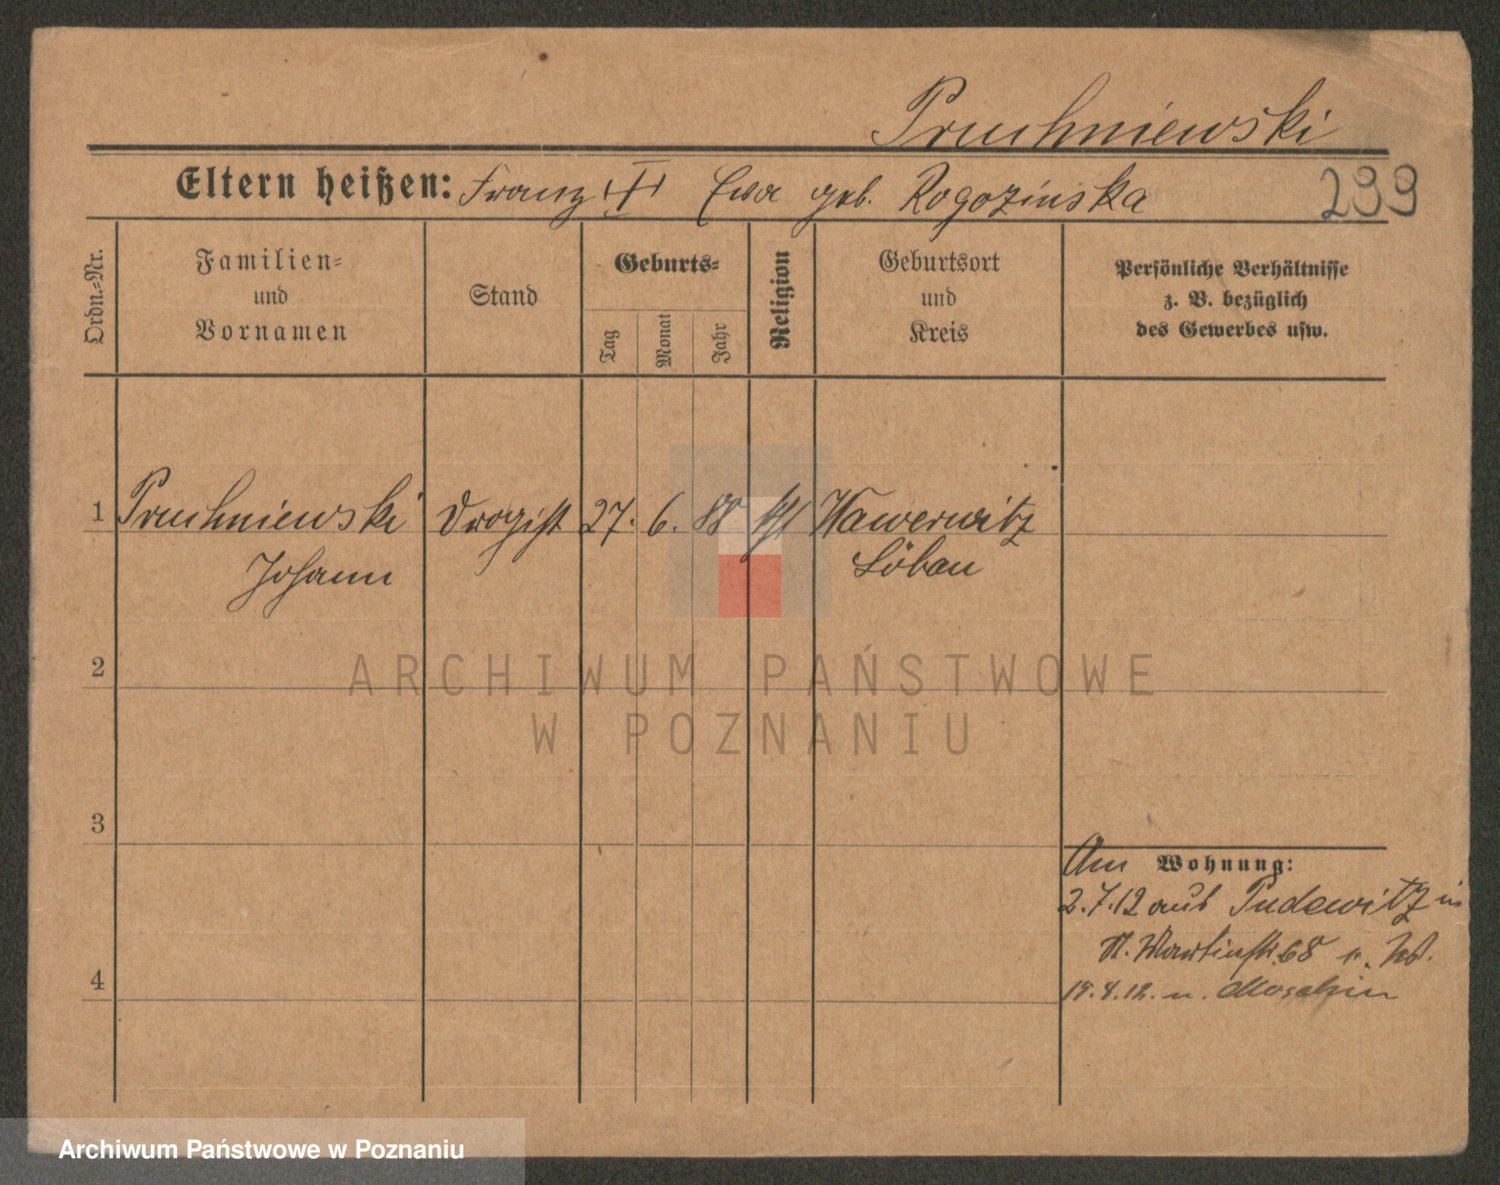 Pruchniewski
Eltern heißen: Franz Ewa geb. Rogozinska
299
Ordn.-Nr.
Familien-
und
Vornamen
Stand
Geburts-
Tag
Monat
Jahr
Religion
Geburtsort
und
Kreis
Persönliche Verhältnisse
z. B. bezüglich
des Gewerbes usw.
1 Pruchniewski Drogist 27. 6. 88 kth Wawerwitz
Johann Löbau
2
3
4
Am Wohnung:
2.7.12 aus Pudewitz in
St. Martinstr. 68 b. W.
19.8.12. n. Moschin
ARCHIWUM PAŃSTWOWE
W POZNANIU
Archiwum Państwowe w Poznaniu